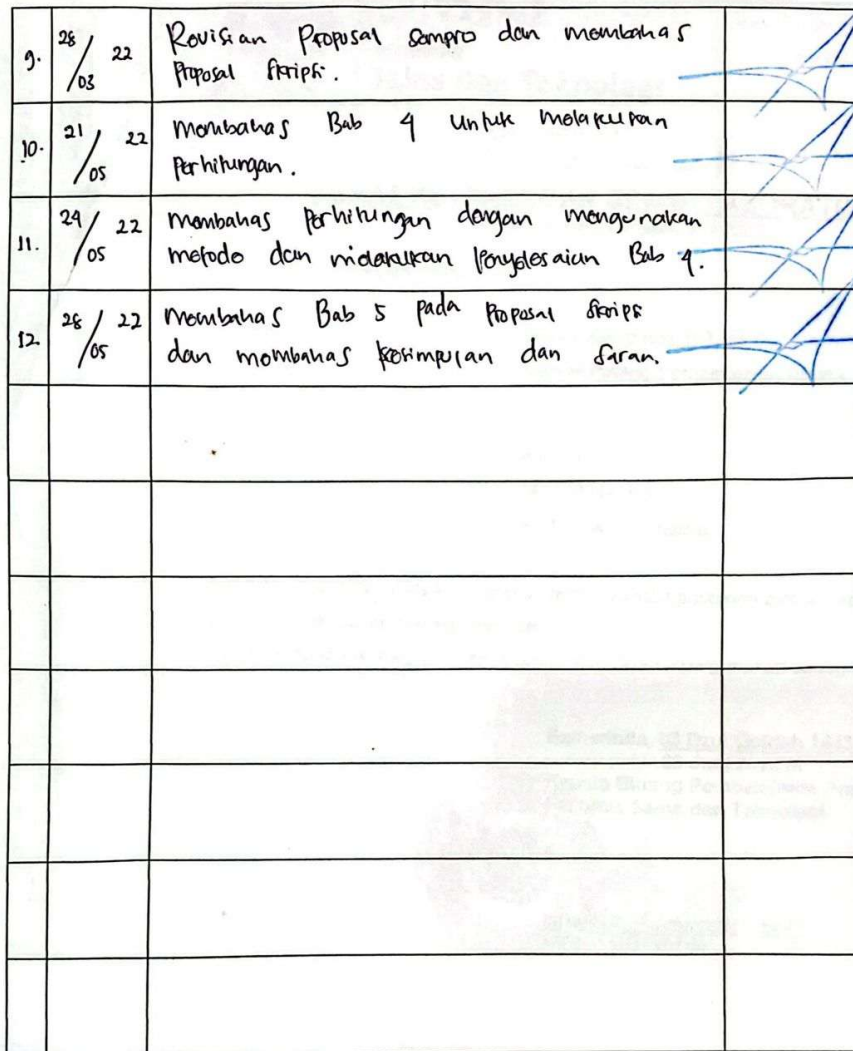 9. 28/03 22 Revisian Proposal Sempro dan membahas
Proposal Skripsi.
10. 21/05 22 Membahas Bab 4 untuk melakukan
Perhitungan.
11. 24/05 22 Membahas Perhitungan dengan mengunakan
metode dan melakukan Penyelesaian Bab 4.
12 28/05 22 Membahas Bab 5 pada Proposal Skripsi
dan membahas kesimpulan dan Saran.